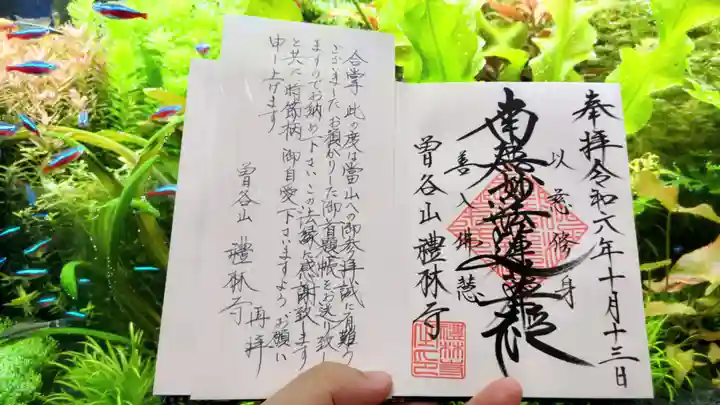 奉拝 令和六年十月十三日
以慈修身
南無妙法蓮華経
善入佛慧
曽谷山 禮林寺
合掌 此の度は當山への御参拝誠に有難う
ございました お預かりした御首題帳をお送り致し
ますのでお納め下さい この法縁に感謝致します
と共に時節柄 御自愛下さいますようお願い
申し上げます
曽谷山 禮林寺
再拝